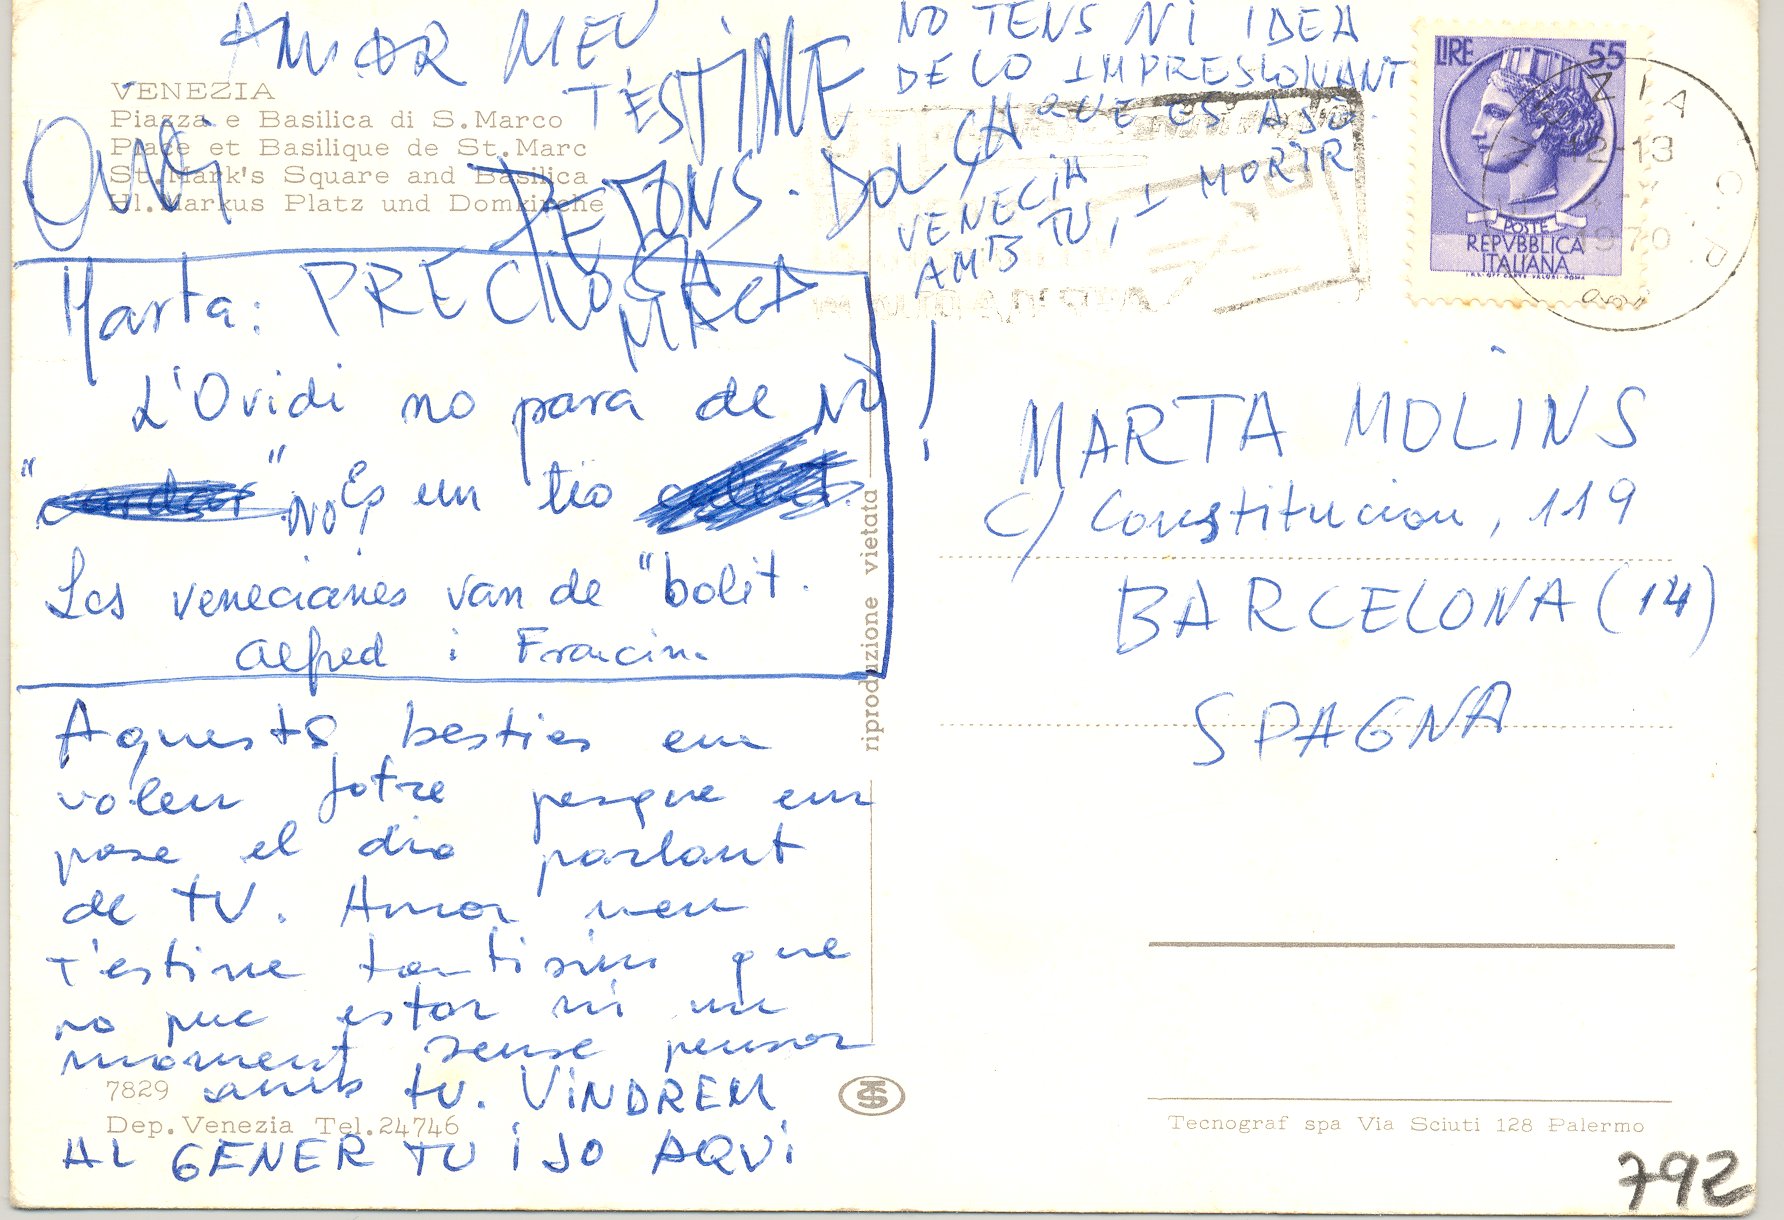 AMOR MEU
T'ESTIME
VENEZIA
Piazza e Basilica di S.Marco
Place et Basilique de St.Marc
St.Mark's Square and Basilica
Hl.Markus Platz und Domkirche
Ovidi
PETONS. DOLÇA
PRECIOSA
MACA
NO TENS NI IDEA
DE LO IMPRESIONANT
QUE ES AJO.
VENECIA
AMB TU, I MORIR
!
Marta:
L'Ovidi no para de
NO
" "
NO Es un tio
Les venecianes van de "bolit.
Alfred i Francin
Aquests besties em
volen fotre perque em
pase el dia parlant
de tu. Amor meu
t'estime tantisim que
no puc estar ni un
moment sense pensar
amb tu. VINDREM
AL GENER TU I JO AQUI
7829
Dep.Venezia Tel.24746
riproduzione vietata
LIRE 55
POSTE
REPVBBLICA
ITALIANA
I.P.S. OFF. CARTE-VALORI-ROMA
ZIA C.P.
12-13
1970
MARTA MOLINS
C/ Constitucion, 119
BARCELONA (14)
SPAGNA
Tecnograf spa Via Sciuti 128 Palermo
792